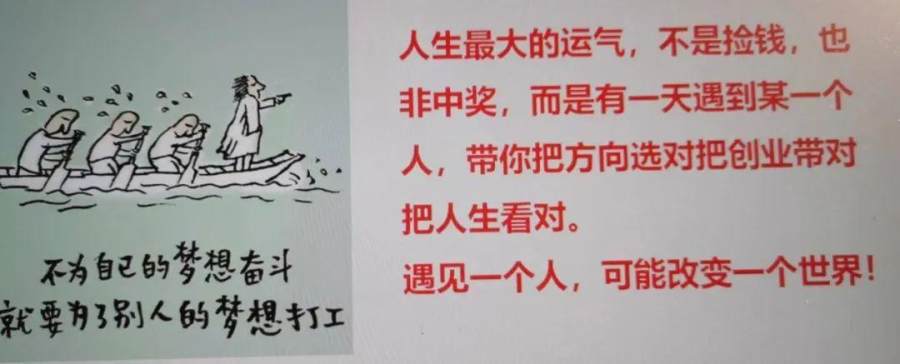 不为自己的梦想奋斗
就要为了别人的梦想打工
人生最大的运气，不是捡钱，也
非中奖，而是有一天遇到某一个
人，带你把方向选对把创业带对
把人生看对。
遇见一个人，可能改变一个世界！